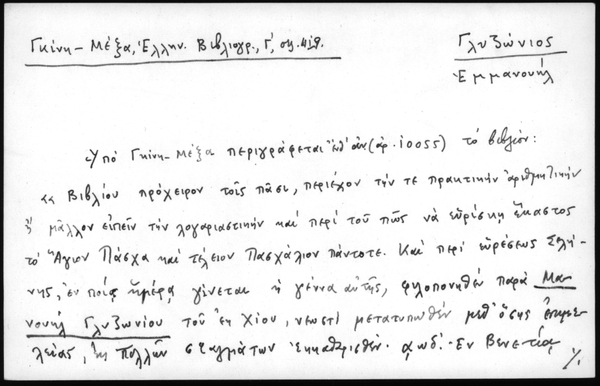 Γκίνη - Μέξα, Ἑλλην. Βιβλιογρ., Γ΄, σημ. 419.
Γλυζώνιος
Ἐμμανουήλ
Ὑπό Γκίνη-Μέξα περιγράφεται (ἀρ. 10055) τό βιβλίον:
«Βιβλίον πρόχειρον τοῖς πᾶσι, περιέχον τήν τε πρακτικήν ἀριθμητικήν
ἤ μᾶλλον εἰπεῖν τήν λογαριαστικήν καί περί τοῦ πῶς νά εὑρίσκῃ ἕκαστος
τό Ἅγιον Πάσχα καί τέλειον Πασχάλιον πάντοτε. Καί περί εὑρέσεως Σελή-
νης, ἐν ποίᾳ ἡμέρᾳ γίνεται ἡ γέννα αὐτῆς, φιλοπονηθέν παρά Μα-
νουήλ Γλυζωνίου τοῦ ἐκ Χίου, νεωστί μετατυπωθέν μεθ᾽ ὅσης ἐπιμε-
λείας, ἐκ πολλῶν σφαλμάτων ἐκκαθαρισθέν. αωδ΄. Ἐν Βενετίᾳ
./.